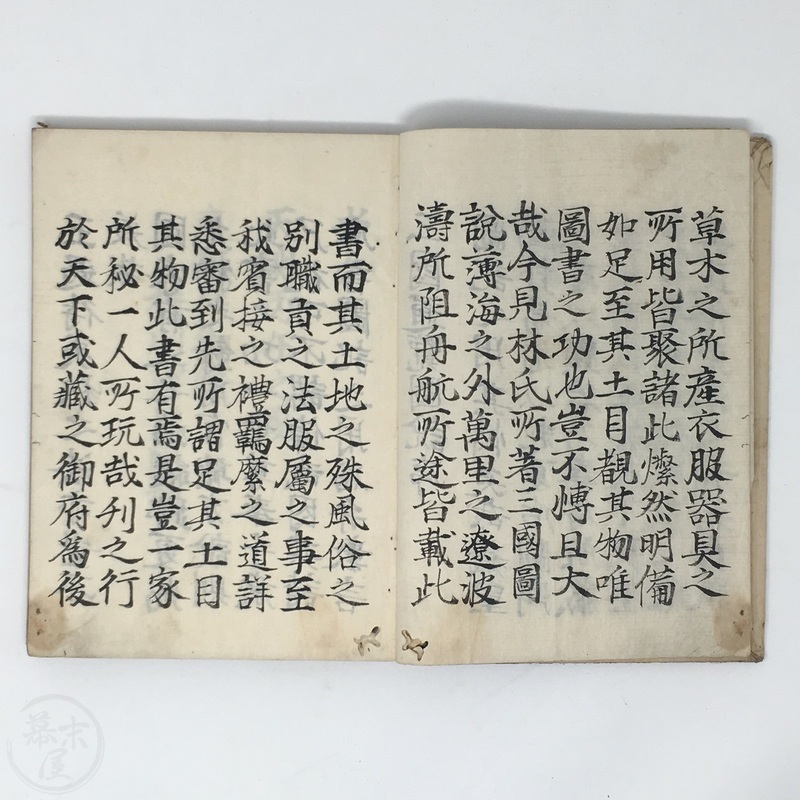 草木之所產衣服器具之
所用皆聚諸此燦然明備
如足至其土目覩其物唯
圖書之功也豈不愽且大
哉今見林氏所著三國圖
說薄海之外萬里之遼波
濤所阻舟航所途皆載此
書而其土地之殊風俗之
別職貢之法服屬之事至
我賓接之禮羈縻之道詳
悉審到先所謂足其土目
其物此書有焉是豈一家
所秘一人所玩哉刋之行
於天下或藏之御府爲後
幕末屋